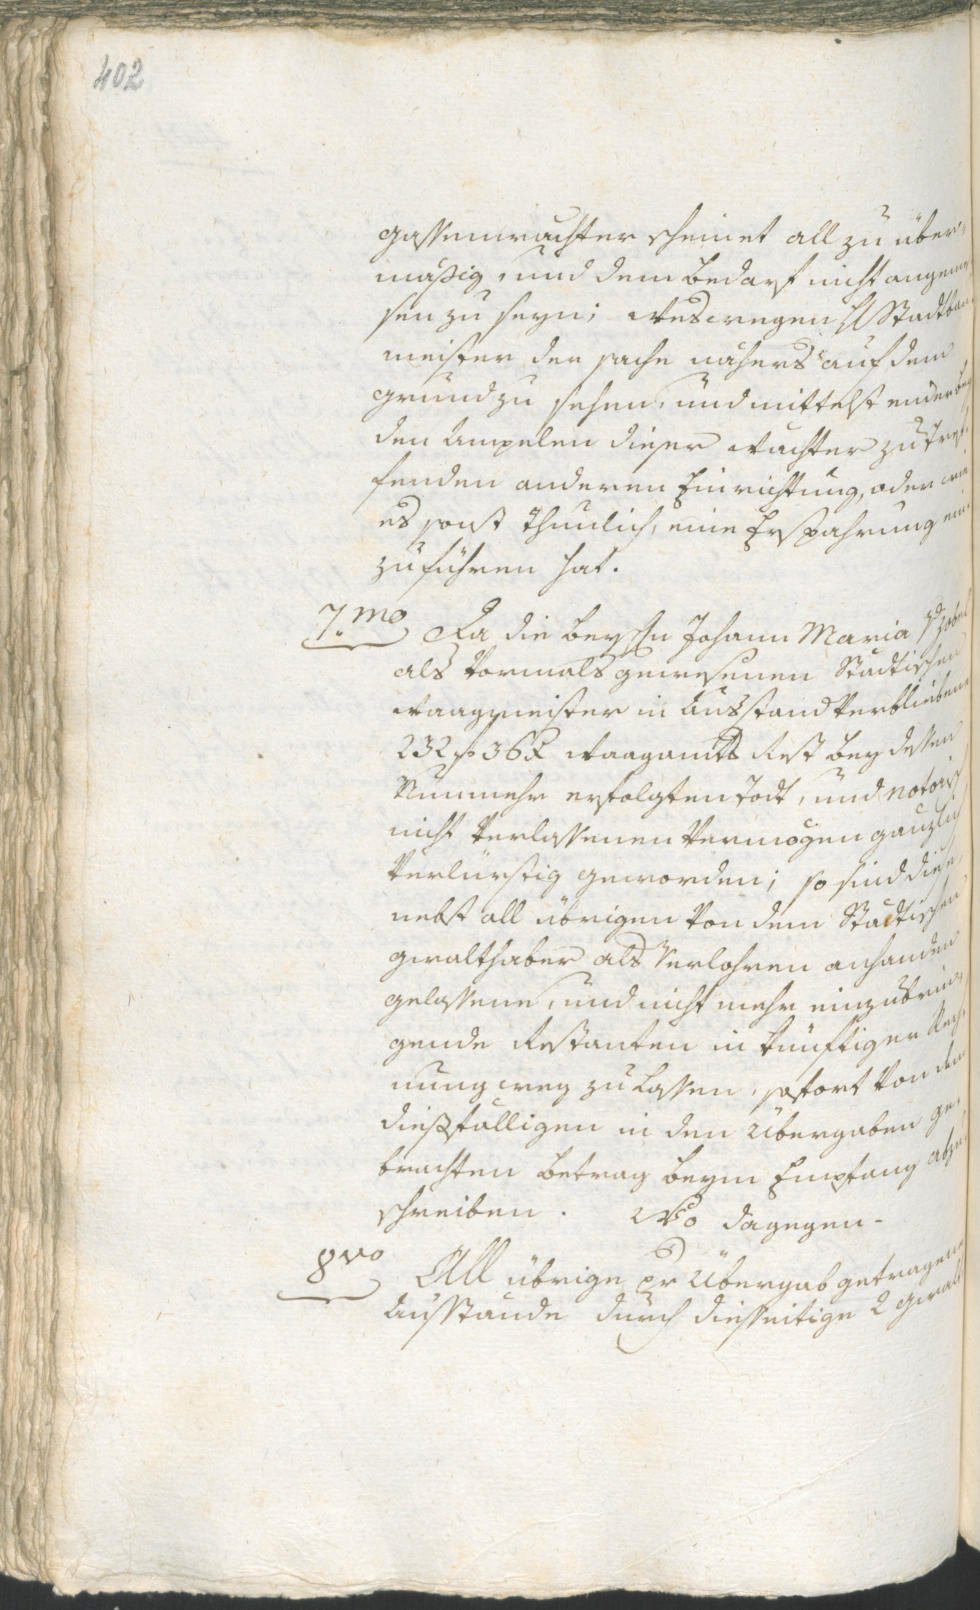 402
gassenwachter scheinet all zu über,
mäßig, und dem bedarf nicht angemes
sen zu seyn; weswegen H Stadtbau
meister der sache näher auf dem
grund zu sehen, und mittelst
den Ampelen dieser wachter zu tref,
fenden anderen Einrichtung, oder wie
es sonst thunlich, eine Ersparung ein
zuführen hat.
7.mo Da die bey Johann Maria
als vormals gewesenen Stadtischen
waagmeister in ausstand verbliebene
232 f 36 x waagamts Rest bey dessen
Nunmehr erfolgten todt, und notorisch
nicht verlassenen vermögen gänzlich
verlurstig geworden; so sind diese
nebst all übrigen von dem Stadtischen
gewalthaber als verlohren anhanden
gelassene, und nicht mehr einzubrin,
gende Restanten in künftiger Rech
nung weg zu lassen, sofort von dem
dießfälligen in den Übergaben ge,
brachten betrag beym Empfang abzu
schreiben. Wo dagegen-
8vo All übrige pr Übergab getragene
Ausstände durch diesseitige 2 gewalt